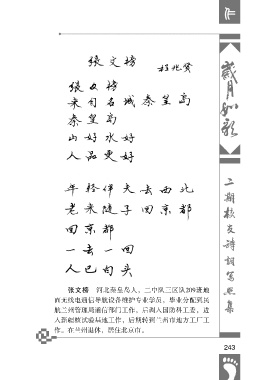 张文榜
程兆贤
张文榜
来自名城秦皇岛
秦皇岛
山好水好
人品更好
年轻伴大去西北
老来随子回京都
回京都
一去一回
人已白头
张文榜 河北秦皇岛人，二中队三区队209班地
面无线电通信导航设备维护专业学员。毕业分配到民
航兰州管理局通信部门工作。后调入国防科工委，进
入新疆核试验基地工作，后期转到兰州市地方工厂工
作。在兰州退休，居住北京市。
岁月如歌
二期校友诗词写照集
243